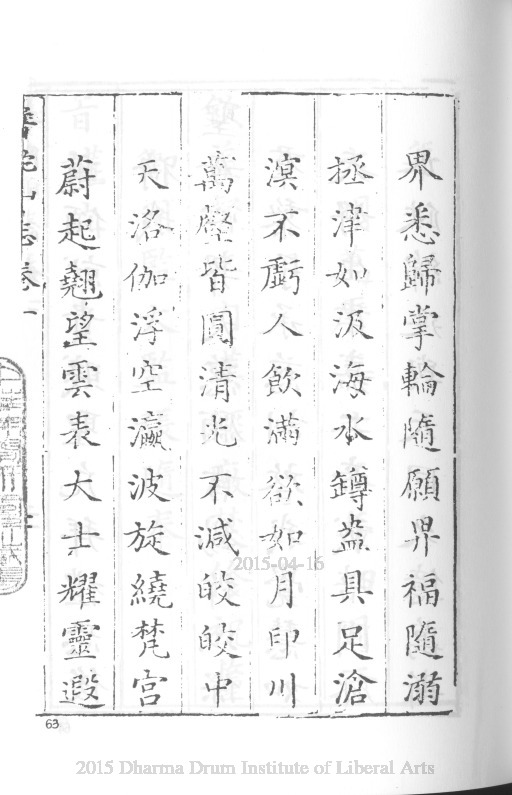 界悉歸掌輪隨願畀福隨溺
拯津如汲海水鐏盎具足滄
溟不虧人飲滿欲如月印川
萬壑皆圓清光不減皎皎中
天洛伽浮空瀛波旋繞梵宮
蔚起翹望雲表大士耀靈遐
普陀山志卷一
63
2015-04-16
2015 Dharma Drum Institute of Liberal Arts